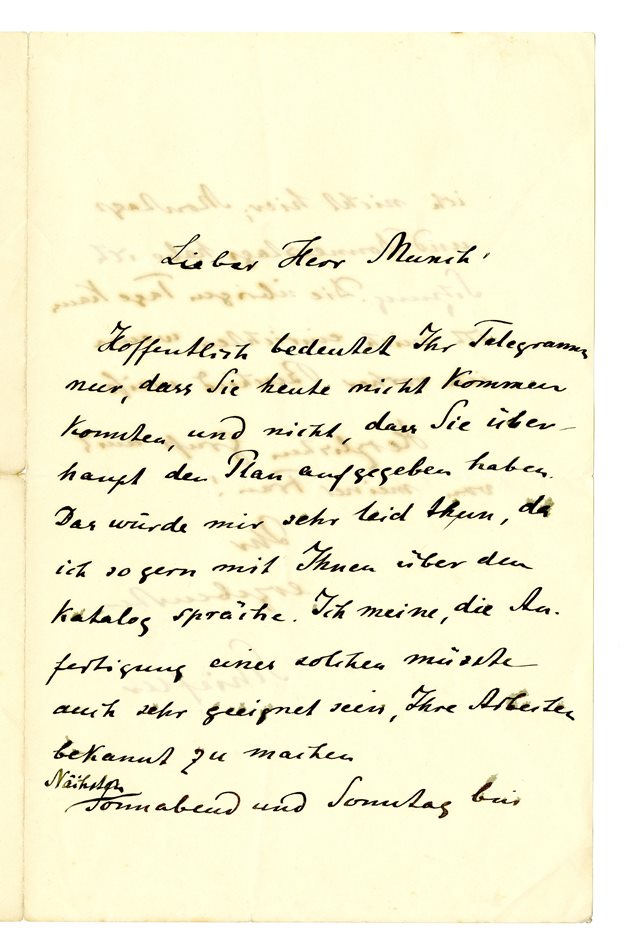 Lieber Herr Munch!
Hoffentlich bedeutet Ihr Telegramm
nur, dass Sie heute nicht kommen
konnten, und nicht, dass Sie über-
haupt den Plan aufgegeben haben.
Das würde mir sehr leid thun, da
ich so gern mit Ihnen über den
Katalog spräche. Ich meine, die An-
fertigung eines solchen müsste
auch sehr geeignet sein, Ihre Arbeiten
bekannt zu machen
Nächsten
Sonnabend und Sonntag bin